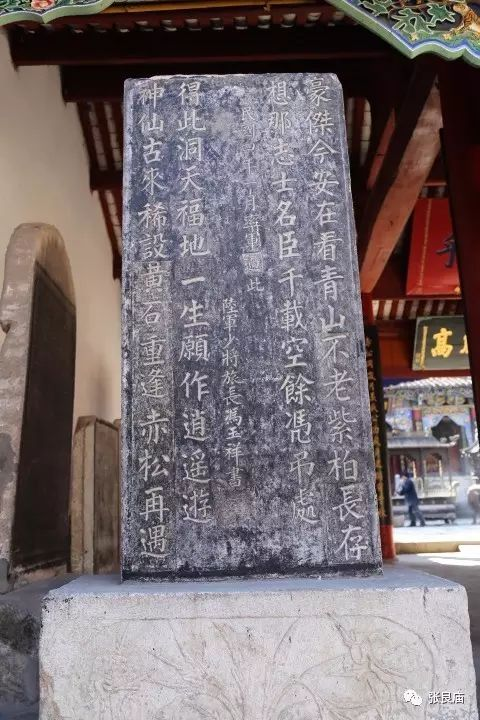 豪傑今安在看青山不老紫柏長存
想那志士名臣千載空餘憑吊處
月率軍過此
陸軍少將旅長馮玉祥書
得此洞天福地一生願作逍遙遊
神仙古來稀設黃石重逢赤松再遇
高
张良庙